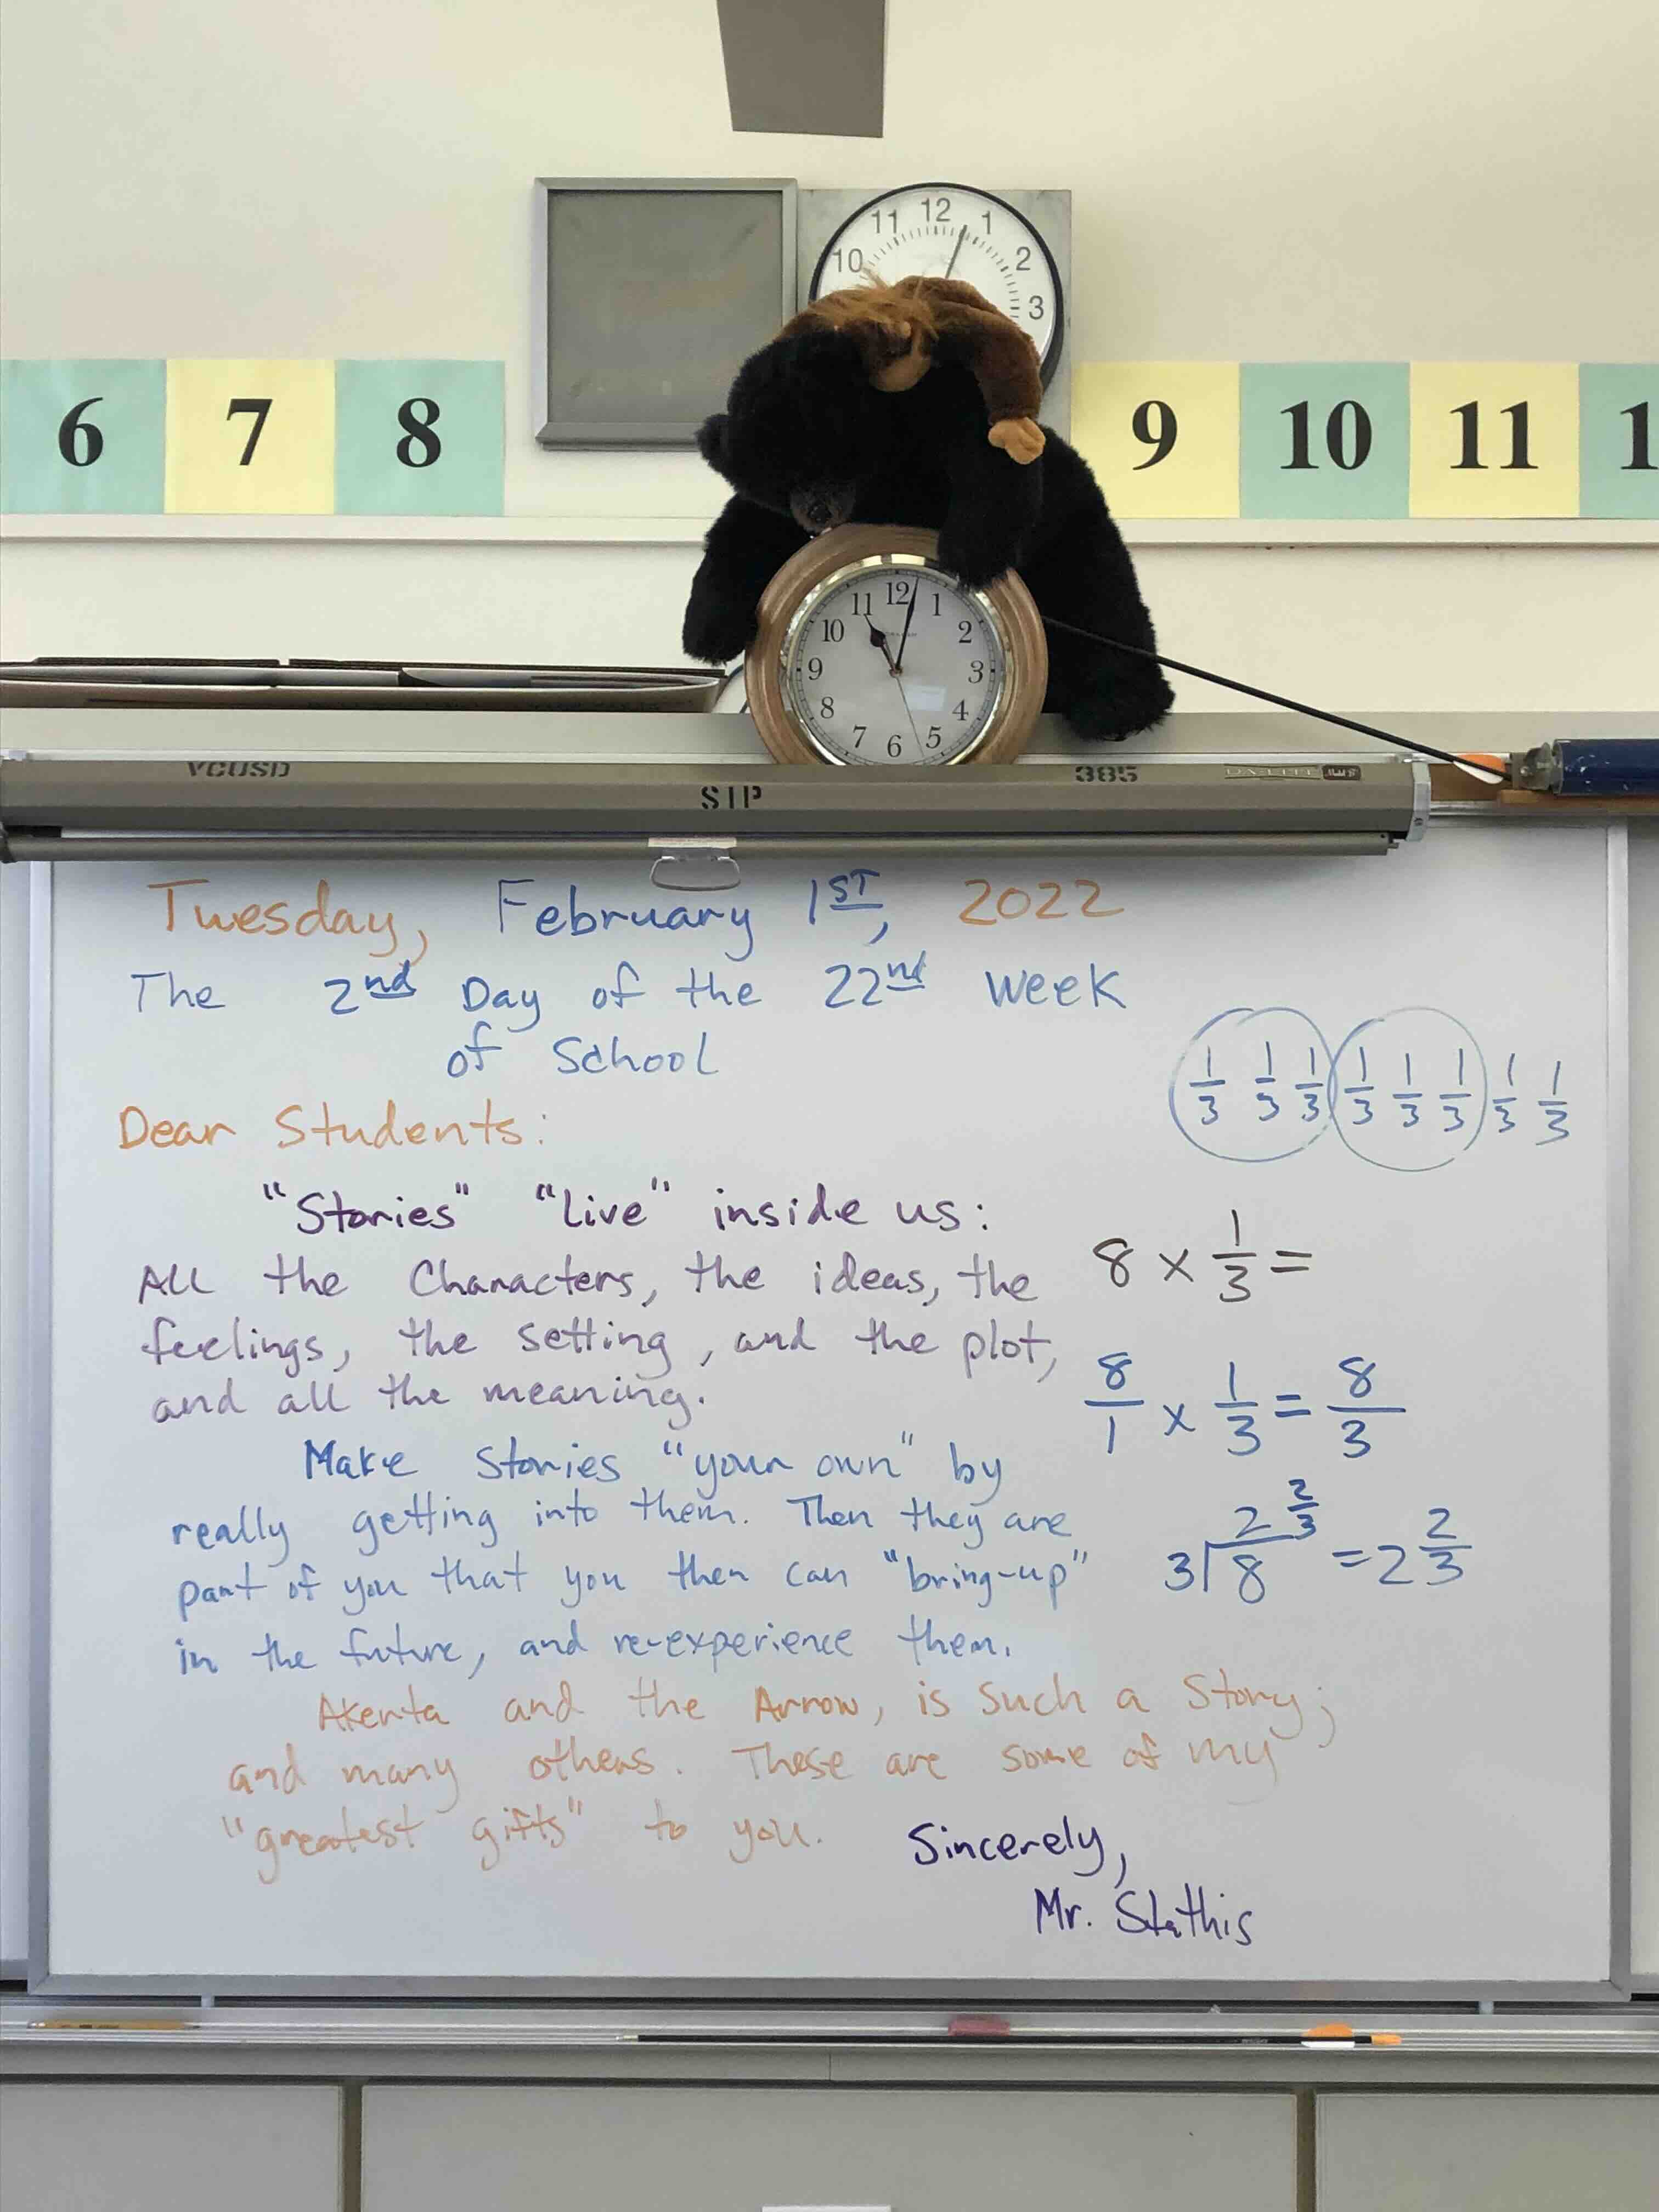 12
11 1
10 2
3
6 7 8 9 10 11 1
12
11 1
10 2
9 3
8 4
7 6 5
VCUSD 385 DA-LITE
STP
Tuesday, February 1ST, 2022
The 2nd Day of the 22nd Week
of School
Dear Students:
"Stories" "Live" inside us:
All the Characters, the ideas, the
feelings, the setting, and the plot,
and all the meaning.
Make Stories "your own" by
really getting into them. Then they are
part of you that you then can "bring-up"
in the future, and re-experience them.
Akenta and the Arrow, is such a Story;
and many others. These are some of my
"greatest gifts" to you.
Sincerely,
Mr. Stathis
1/3 1/3 1/3 1/3 1/3 1/3 1/3 1/3
8 × 1/3 =
8/1 × 1/3 = 8/3
2 2/3
3 8 = 2 2/3